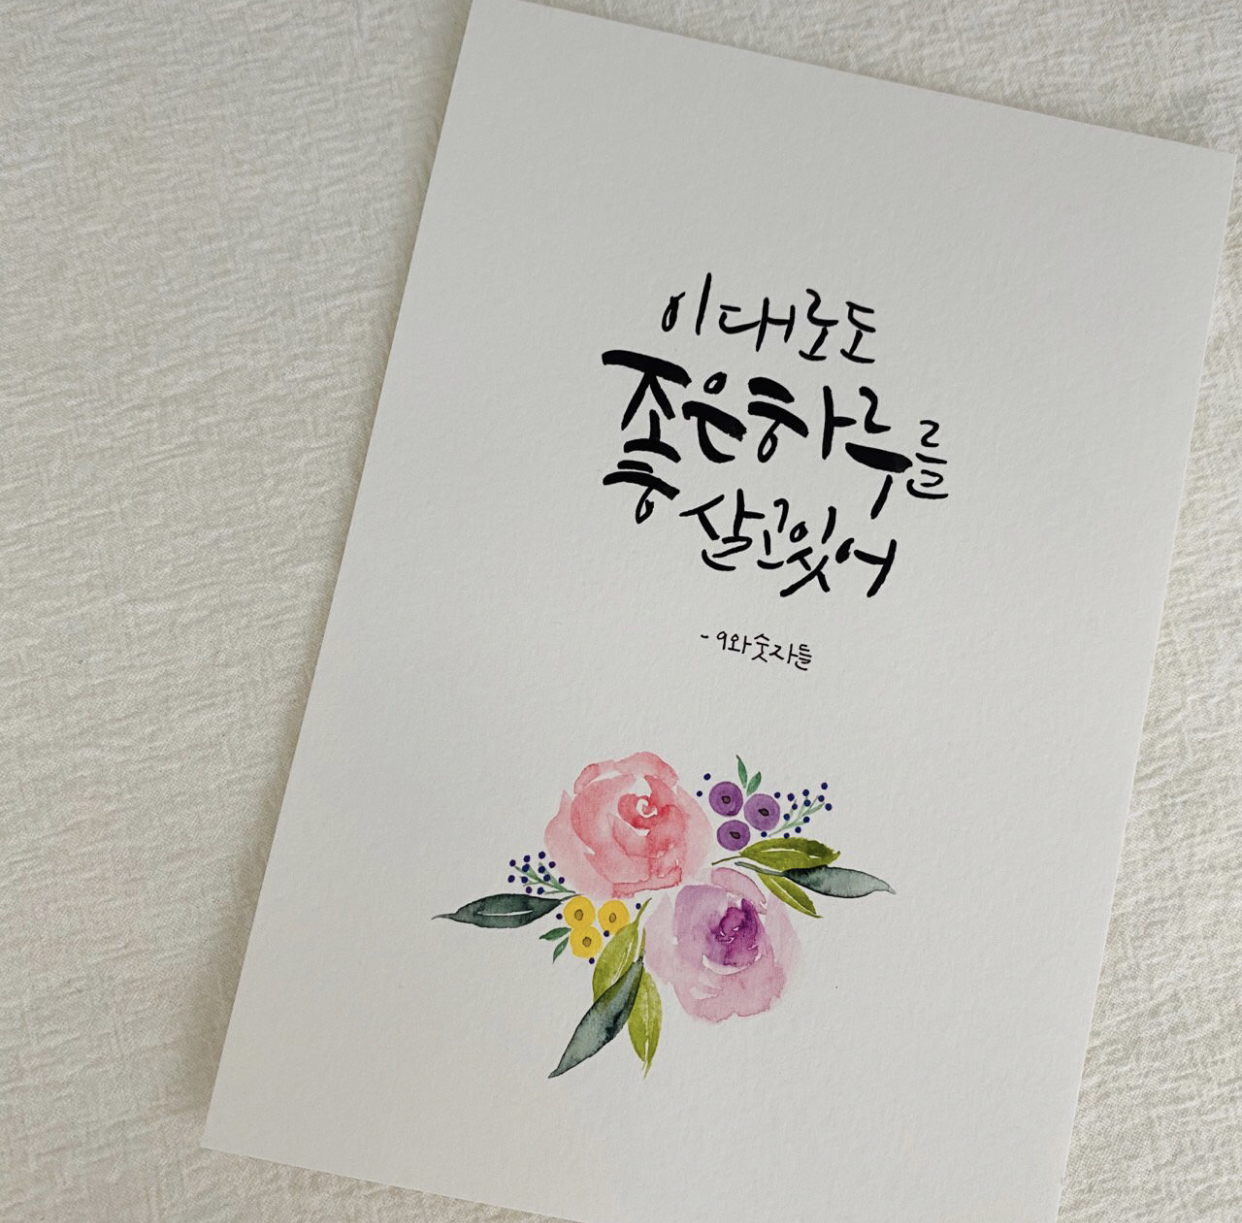 이대로도
좋은하루를
살고있어
- 9와숫자들